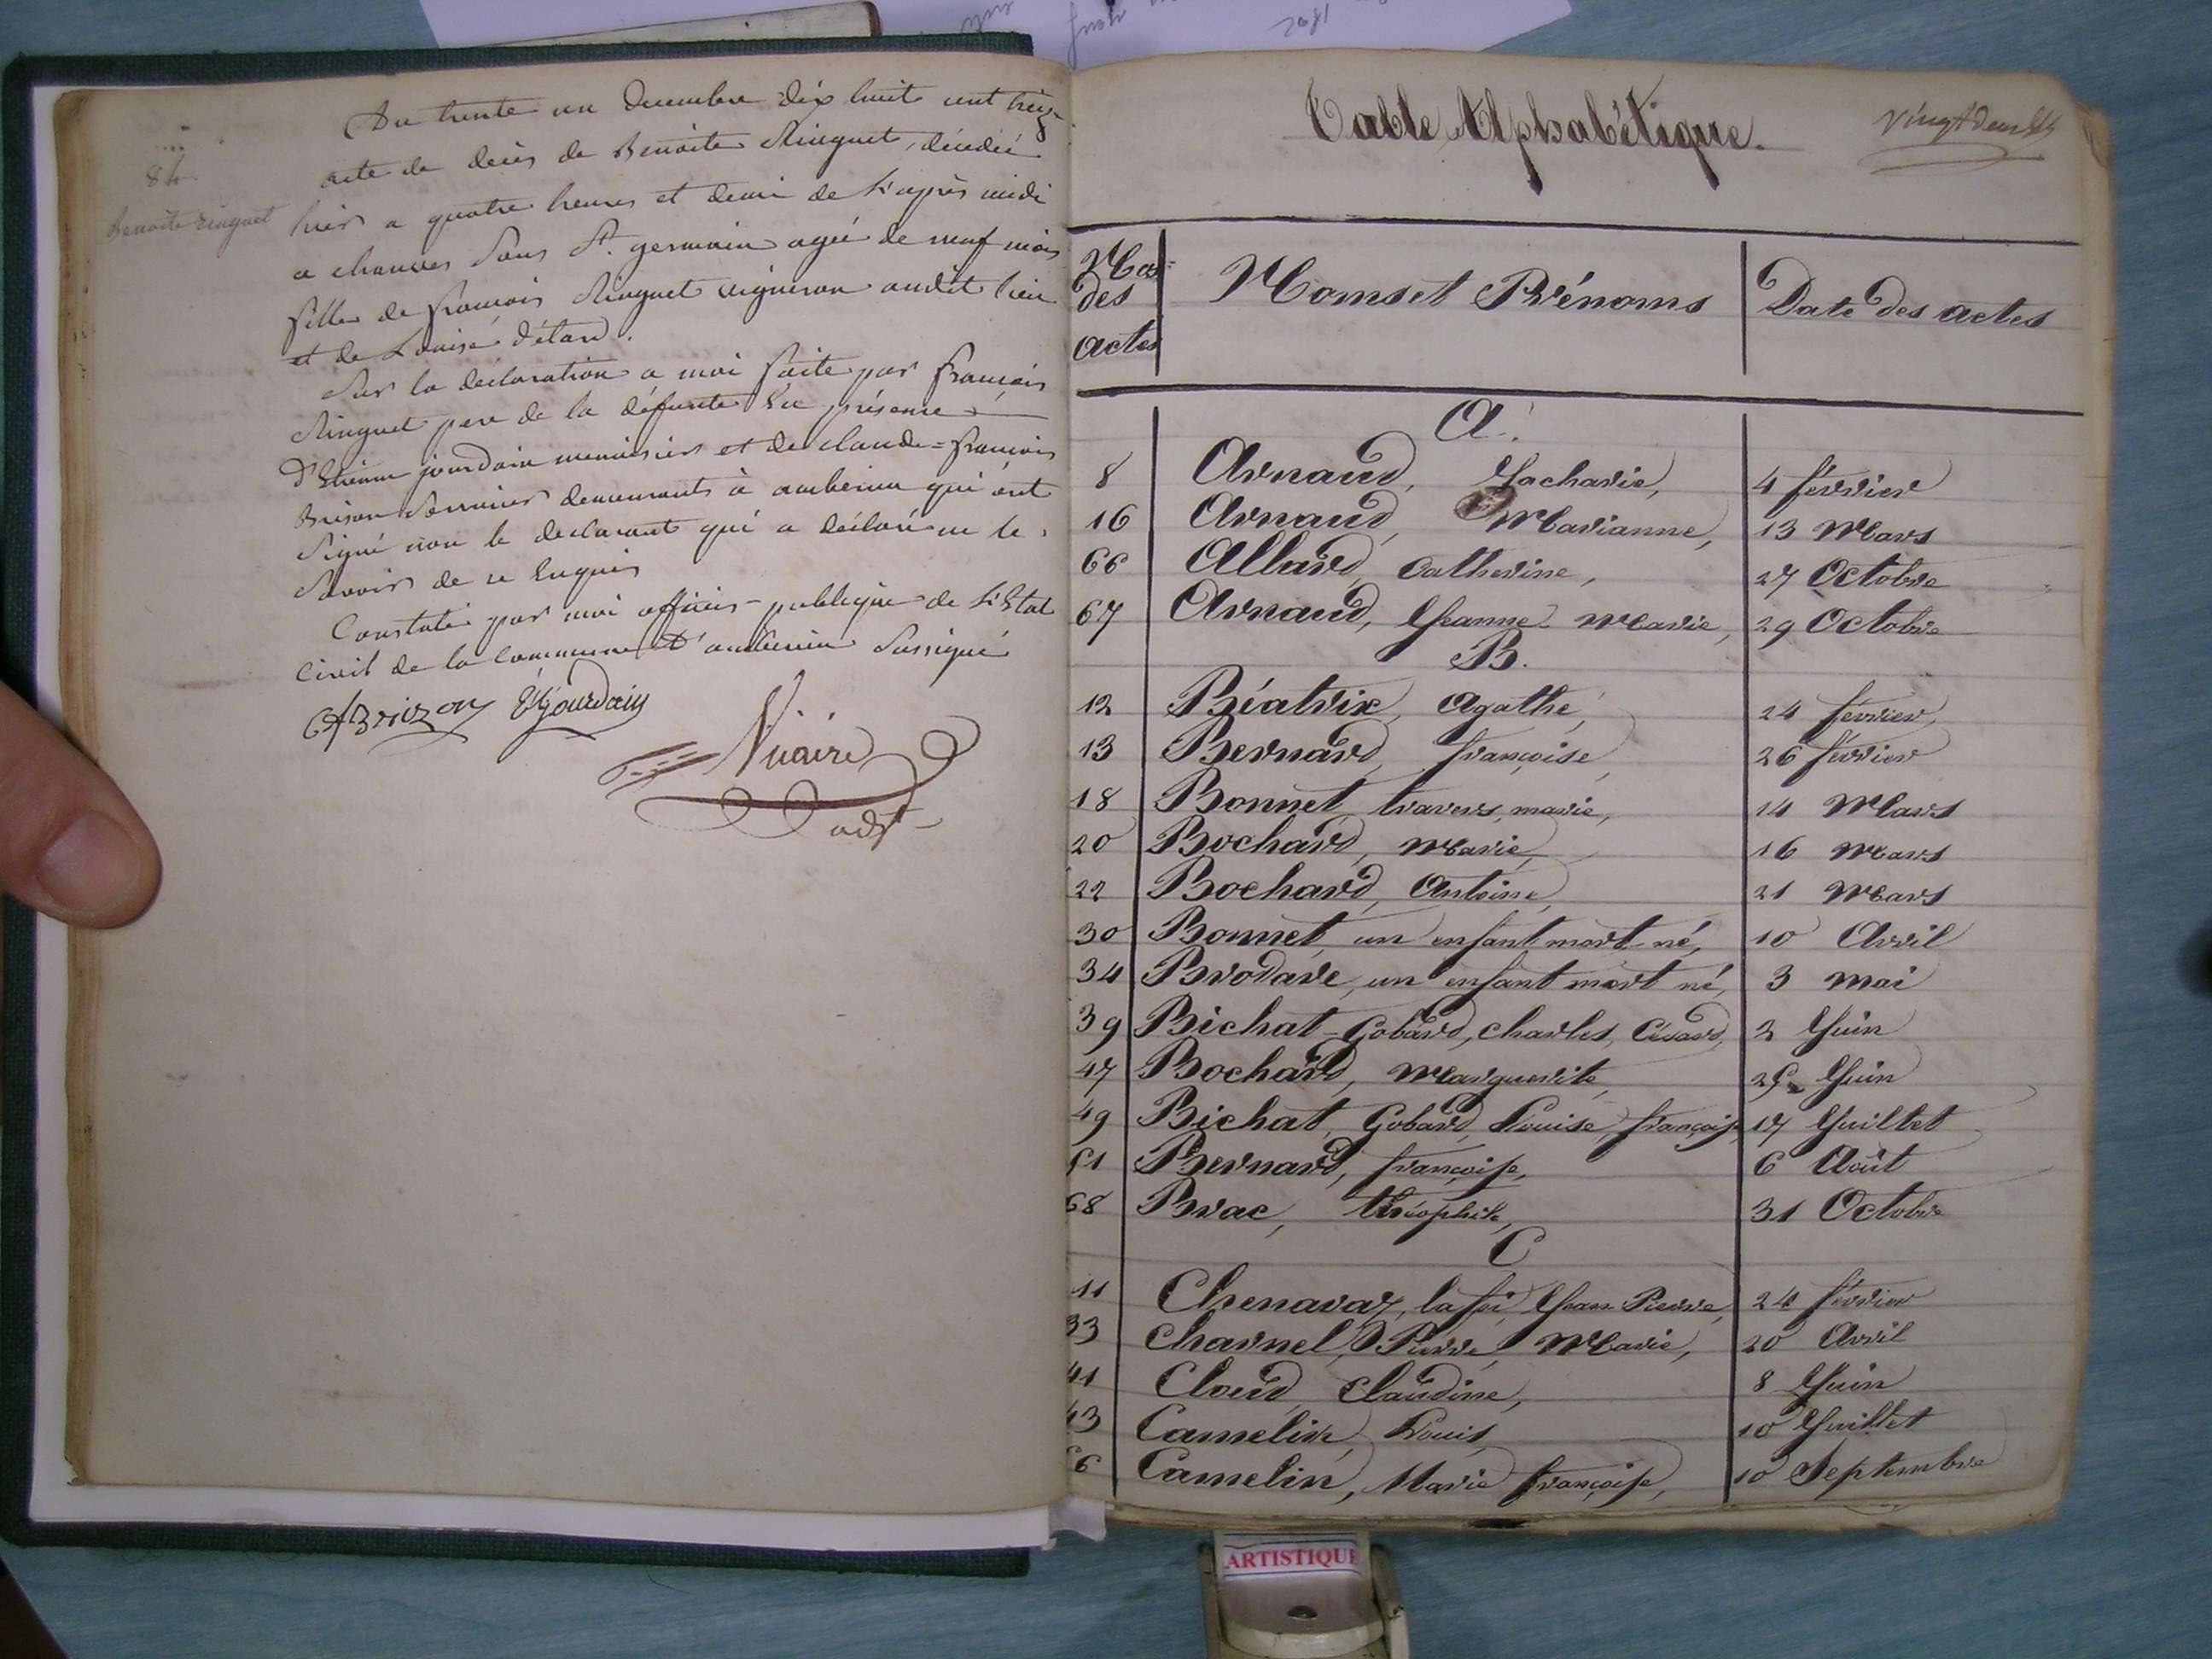 Du trente un decembre dix huit cent treize
acte de décès de Benoite Ringuet, décédée
hier a quatre heures et demi de l'après midi
a chauves sous St. germain agée de neuf mois
fille de françois Ringuet vigneron audit lieu
et de Louise détard.
Sur la déclaration a moi faite par françois
Ringuet pere de la défunte En présence
d'Etienne jourdain menuisier et de claude=françois
Brison Serrurier demeurants à ambérieu qui ont
signé non le déclarant qui a déclaré ne le
savoir de ce Enquis
Constaté par moi officier publique de l'Etat
civil de la commune d'ambérieu Soussigné
84
Benoite ringuet
CfBrizon Etjourdain
Vicaire
adjt
Table Alphabétique.
vingt deux
Nos des actes
Noms et Prénoms
Date des actes
A.
8 Arnaud, Zacharie, 4 février
16 Arnaud, Marianne, 13 Mars
66 Allard, Catherine, 27 Octobre
67 Arnaud, Jeanne Marie, 29 Octobre
B.
12 Béatrix, Agathe, 24 février
13 Bernard, françoise, 26 février
18 Bonnet, travers, marie, 14 Mars
20 Bochard, Marie, 16 Mars
22 Bochard, Antoine, 21 Mars
30 Bonnet, un enfant mort né, 10 Avril
34 Brodare, un enfant mort né, 3 mai
39 Bichat-Gobard, Charles, César, 2 Juin
47 Bochard, Marguerite, 25 Juin
49 Bichat, Gobard, Louise, françoise 17 Juillet
51 Bernard, françoise, 6 Août
68 Brac, théophile, 31 Octobre
C
11 Chenavaz, la foi, Jean-Pierre, 24 février
33 Charnel, Pierre, Marie, 20 Avril
41 Cloud, Claudine, 8 Juin
43 Camelin, Louis, 10 Juillet
6 Camelin, Marie françoise, 10 Septembre
ARTISTIQUE